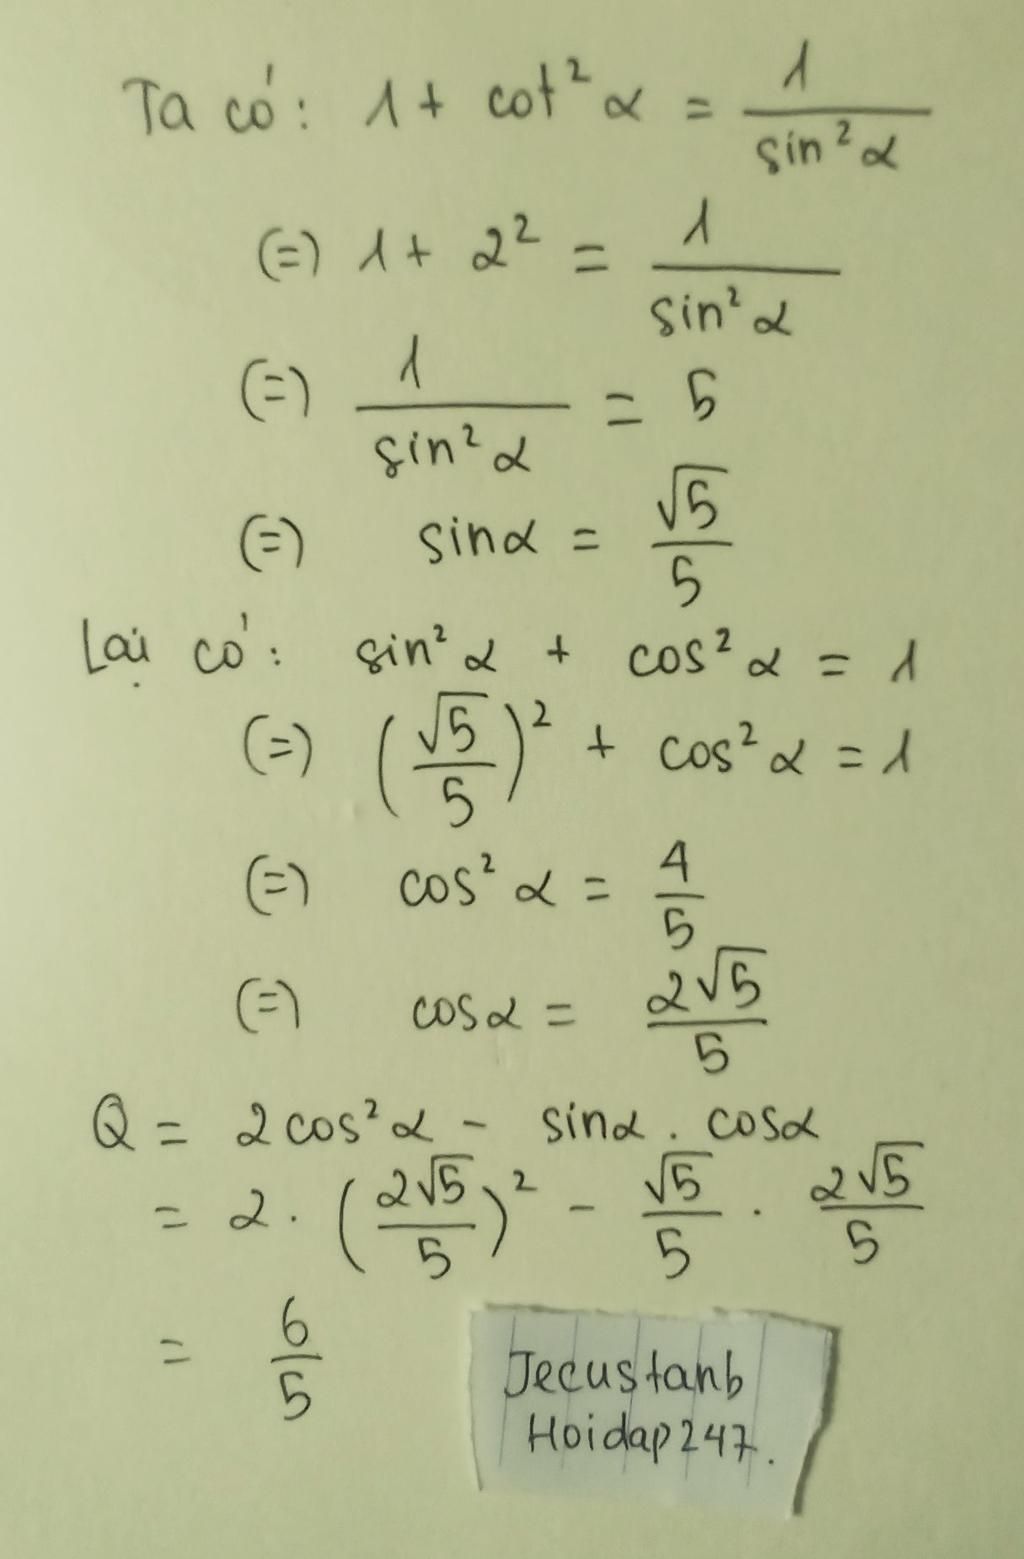 Ta có: 1 + cot²α = 1/sin²α
(=) 1 + 2² = 1/sin²α
(=) 1/sin²α = 5
(=) sinα = √5/5
Lại có: sin²α + cos²α = 1
(=) (√5/5)² + cos²α = 1
(=) cos²α = 4/5
(=) cosα = 2√5/5
Q = 2cos²α - sinα . cosα
= 2 . (2√5/5)² - √5/5 . 2√5/5
= 6/5
Jecustanb
Hoidap247.